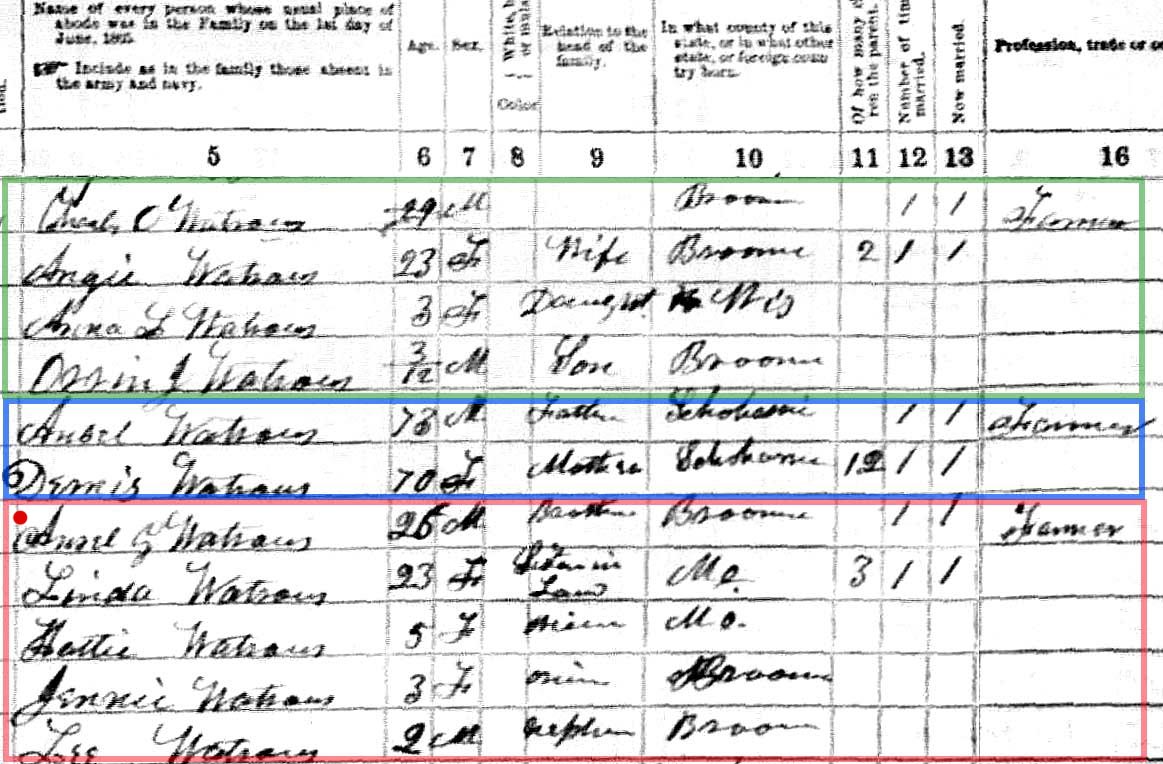 Name of every person whose usual place of
abode was in the Family on the 1st day of
June, 1865.
☞ Include as in the family those absent in
the army and navy.
Age.
Sex.
Color
Relation to the
head of the
family.
In what county of this
state, or in what other
state, or foreign coun
try born.
Of how many
ren the parent.
Number of tim
married.
Now married.
Profession, trade or oc
5 6 7 8 9 10 11 12 13 16
O Watrous 29 M Broom 1 1 Farmer
Angie Watrous 23 F Wife Broome 2 1 1
Anna L Watrous 3 F Daught Wis
Orrin J Watrous 3/12 M Son Broome
Ansel Watrous 73 M Father Schoharie 1 1 Farmer
Demis Watrous 70 F Mother Schoharie 12 1 1
Watrous 26 M Brother Broome 1 1 Farmer
Linda Watrous 23 F Law 3 1 1
Hattie Watrous 5 F
Jennie Watrous 3 F Broome
Lee Watrous 2 M nephew Broom